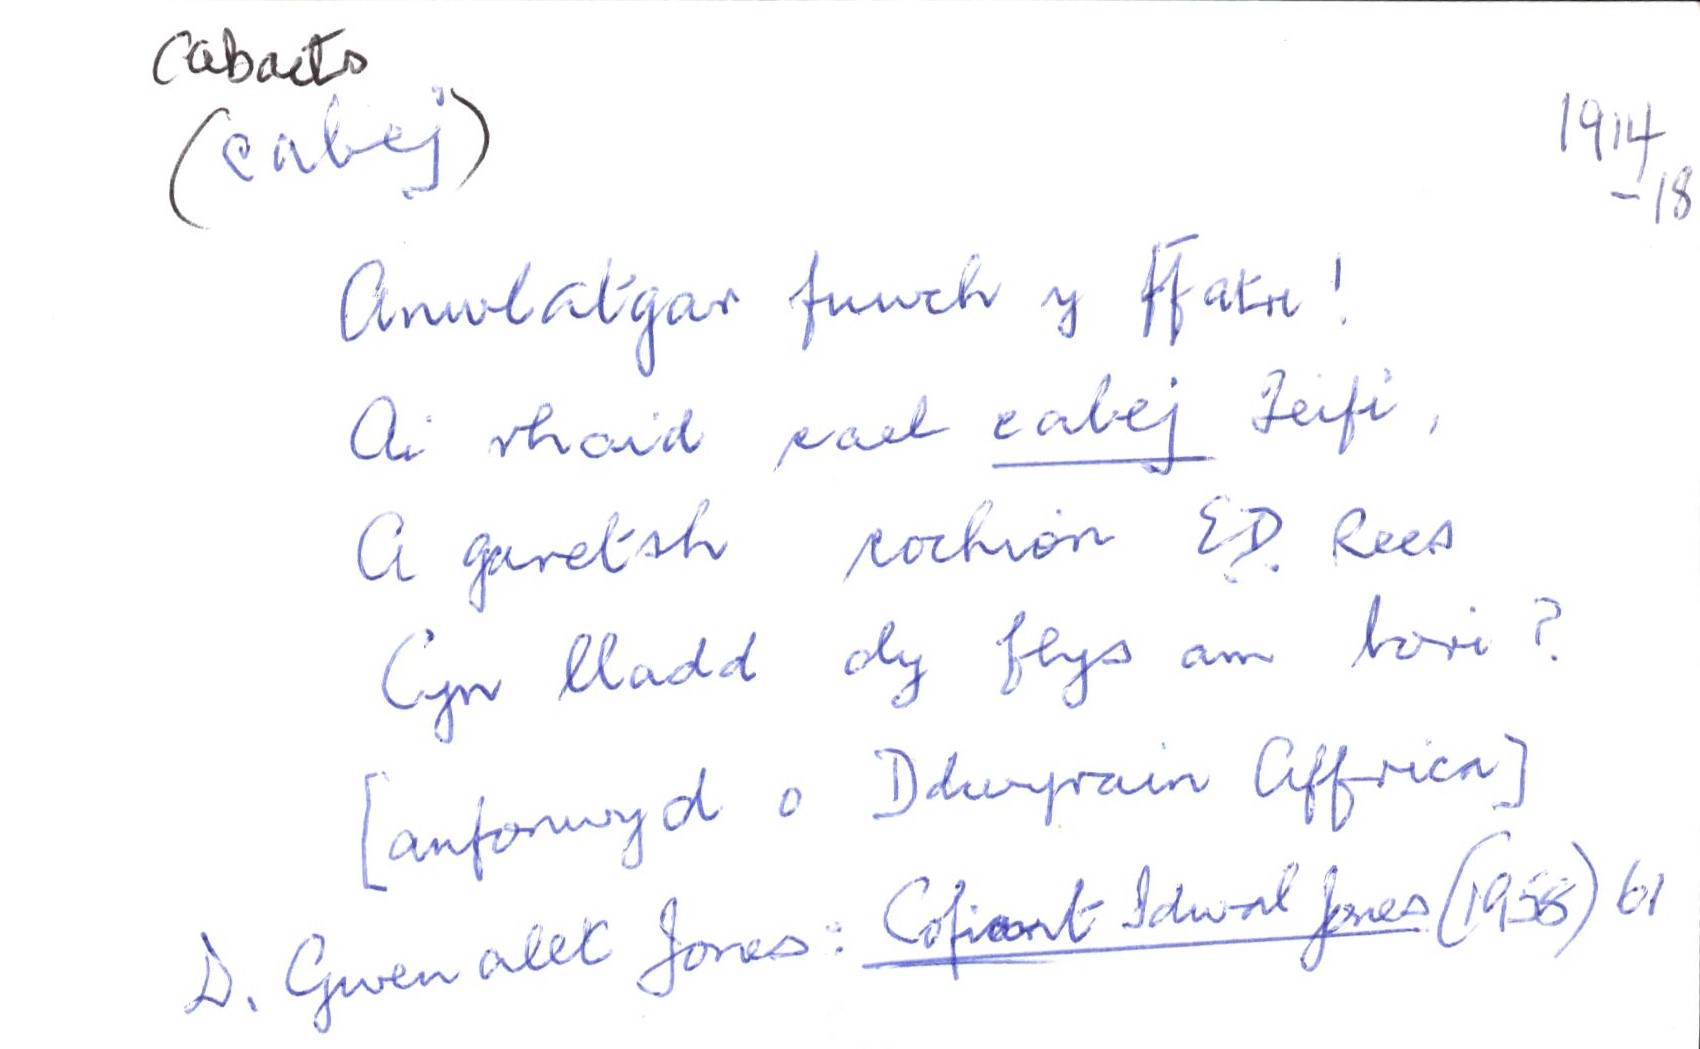 Cabaets
(cabej)
1914
-18
Anwlatgar fuwch y Ffatri!
Ai rhaid cael cabej Teifi,
A garetsh cochion E.D. Rees
Cyn lladd dy flys am bori?
[anfonwyd o Ddwyrain Affrica]
D. Gwenallt Jones: Cofiant Idwal Jones (1958) 61